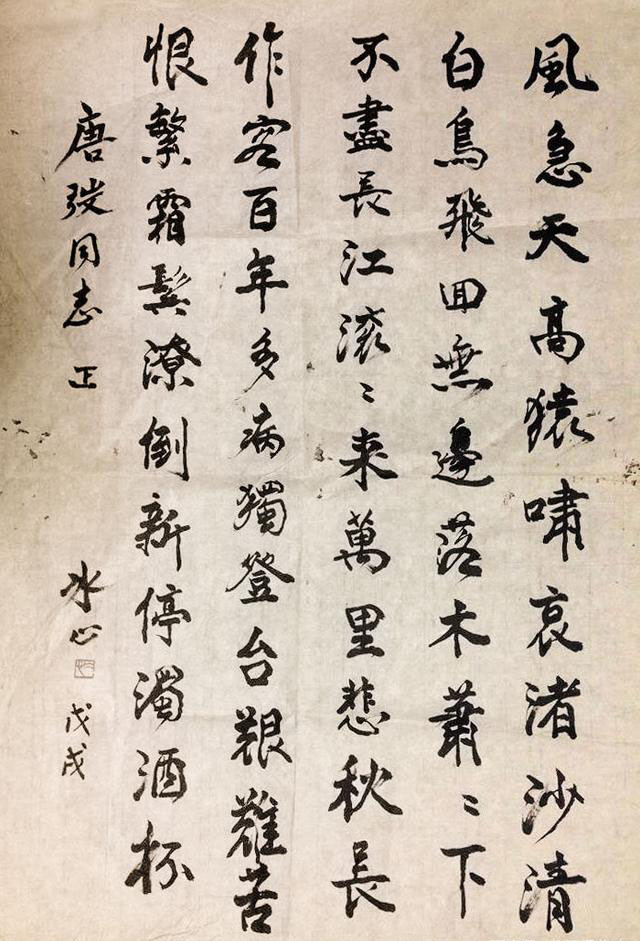 風急天高猿嘯哀渚沙清
白鳥飛回無邊落木蕭〻下
不盡長江滚〻来萬里悲秋長
作客百年多病獨登台艱難苦
恨繁霜鬢潦倒新停濁酒杯
唐弢同志 正
冰心 戊戌